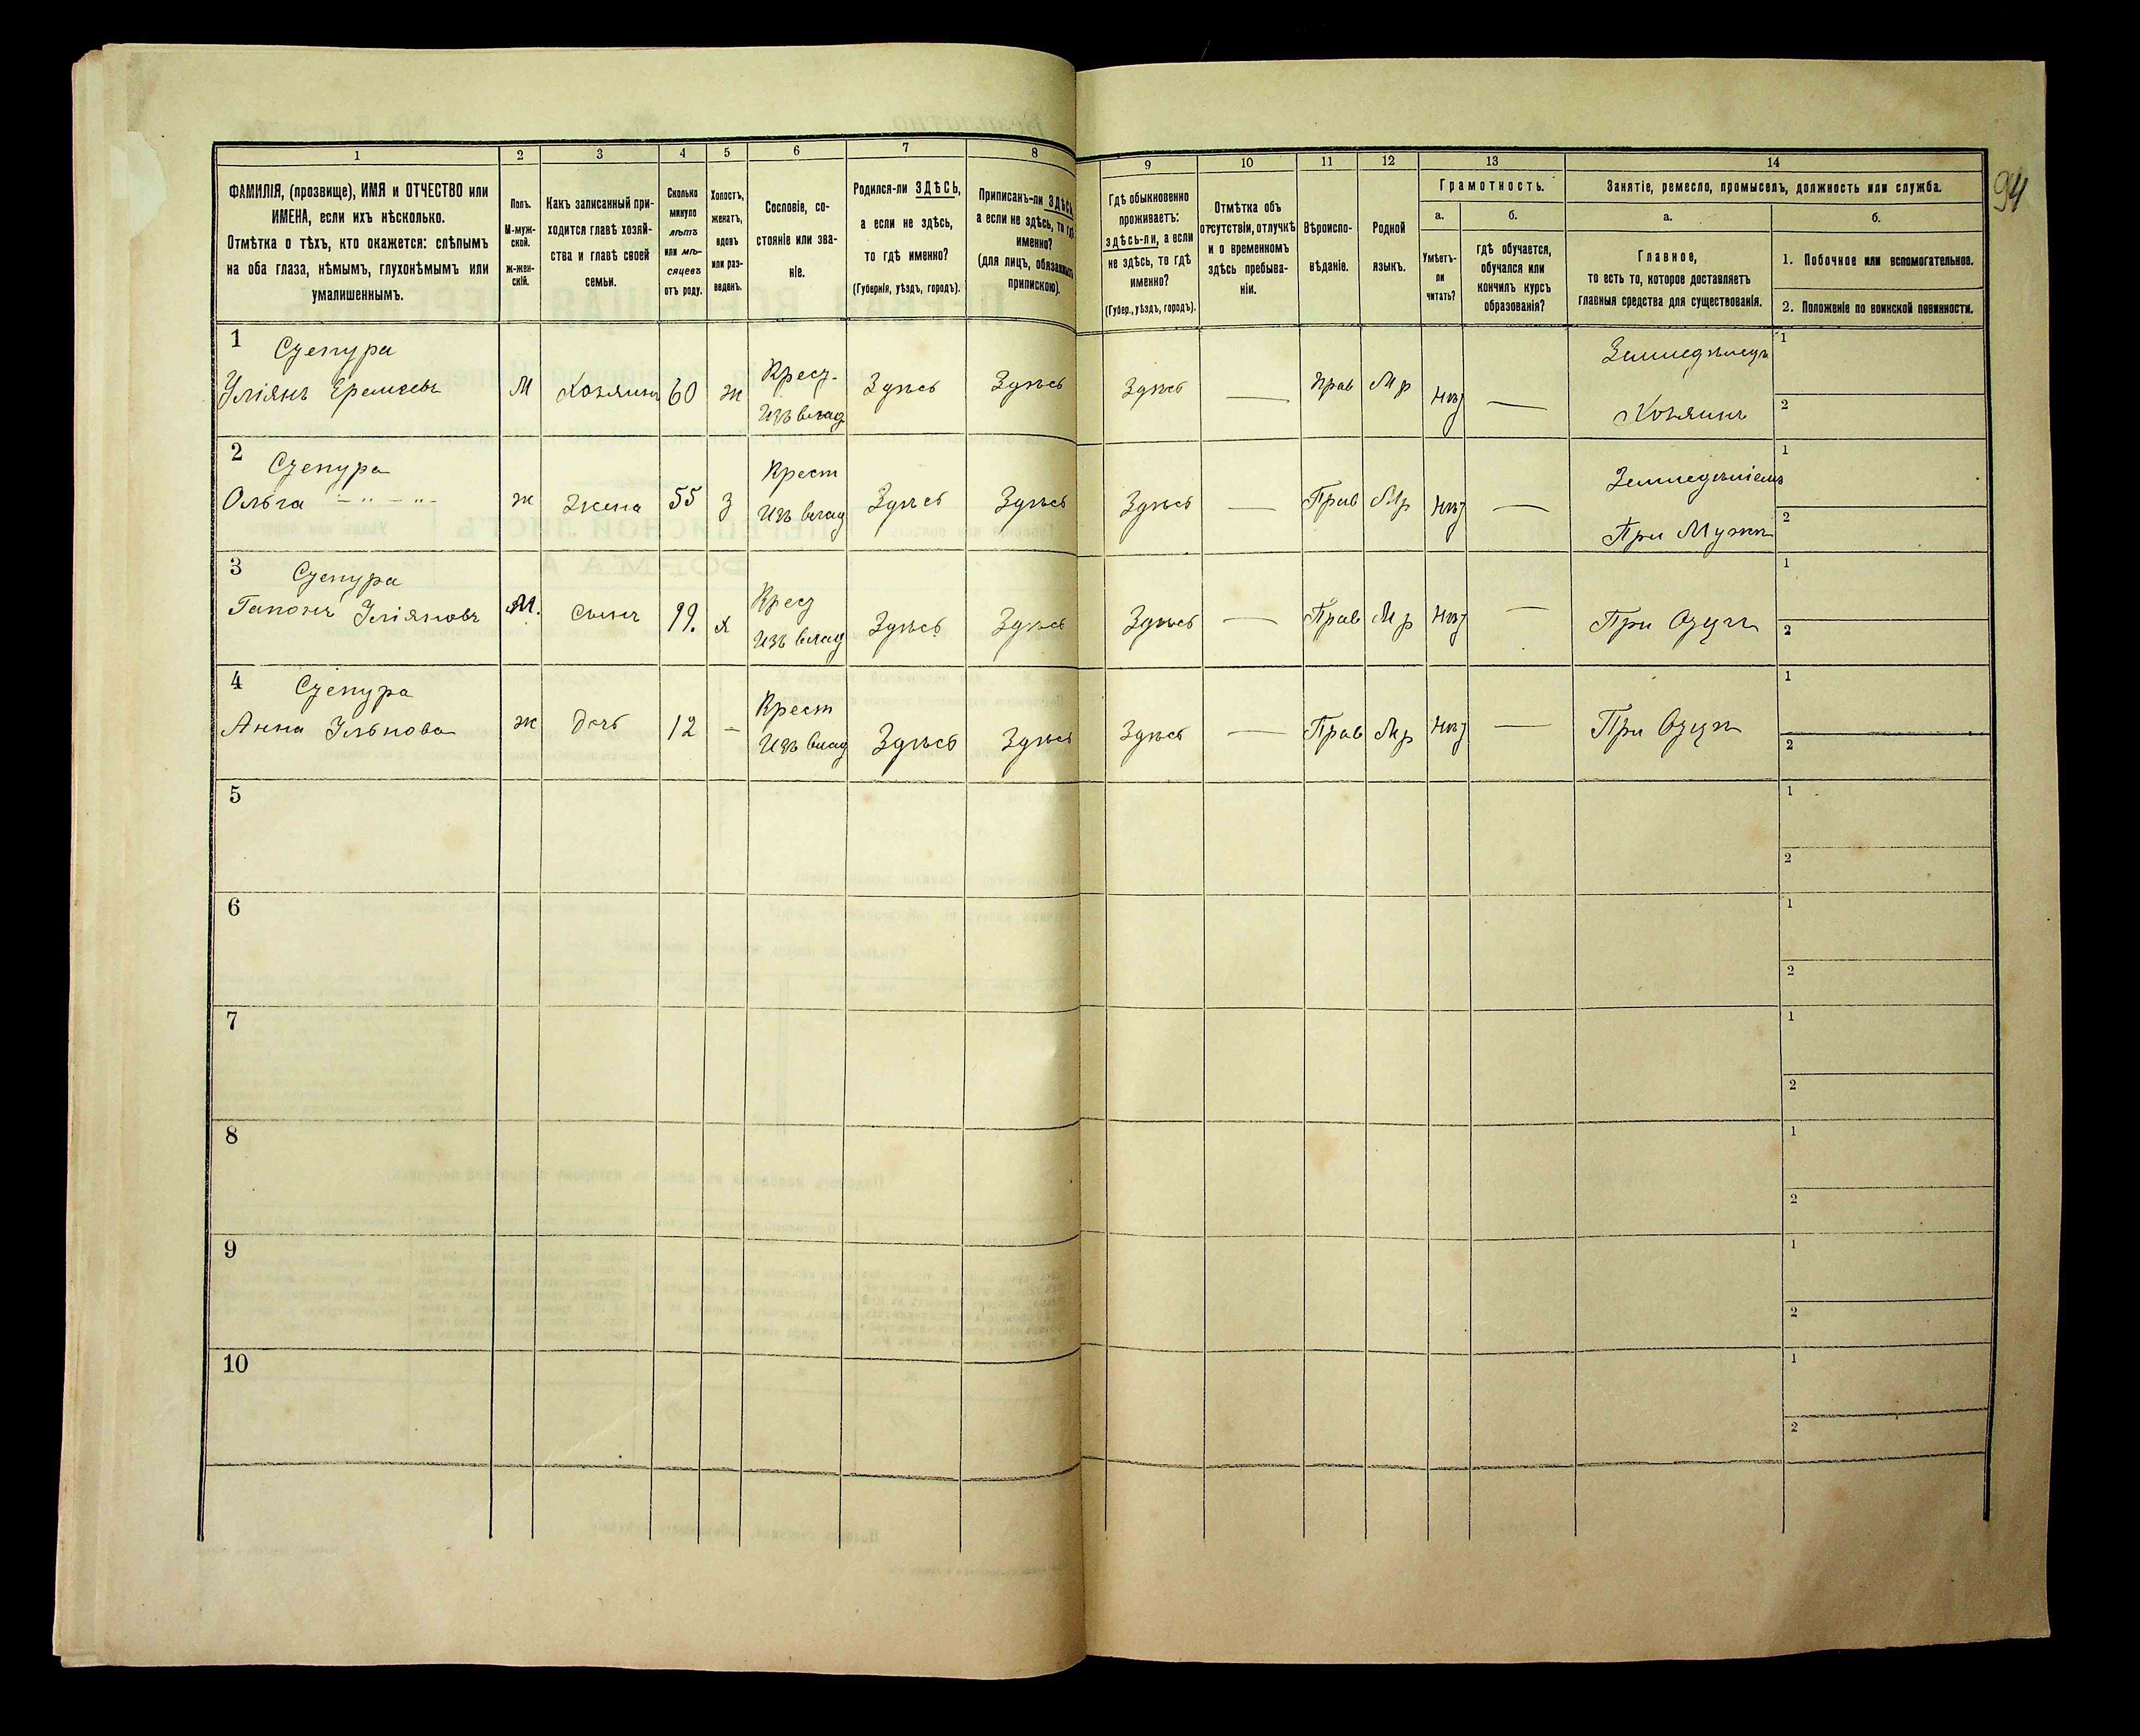 94
1 2 3 4 5 6 7 8 9 10 11 12 13 14
ФАМИЛІЯ, (прозвище), ИМЯ и ОТЧЕСТВО или
ИМЕНА, если ихъ нѣсколько.
Отмѣтка о тѣхъ, кто окажется: слѣпымъ
на оба глаза, нѣмымъ, глухонѣмымъ или
умалишеннымъ.
Полъ.
М-муж-
ской.
ж-жен-
скій.
Какъ записанный при-
ходится главѣ хозяй-
ства и главѣ своей
семьи.
Сколько
минуло
лѣтъ
или мѣ-
сяцевъ
отъ роду.
Холостъ,
женатъ,
вдовъ
или раз-
веденъ.
Сословіе, со-
стояніе или зва-
ніе.
Родился-ли ЗДѢСЬ,
а если не здѣсь,
то гдѣ именно?
(Губернія, уѣздъ, городъ).
Приписанъ-ли ЗДѢСЬ,
а если не здѣсь, то гдѣ
именно?
(для лицъ, обязанныхъ
припискою).
Гдѣ обыкновенно
проживаетъ:
здѣсь-ли, а если
не здѣсь, то гдѣ
именно?
(Губер., уѣздъ, городъ).
Отмѣтка объ
отсутствіи, отлучкѣ
и о временномъ
здѣсь пребыва-
ніи.
Вѣроиспо-
вѣданіе.
Родной
языкъ.
Грамотность.
а. б.
Умѣетъ-
ли
читать?
гдѣ обучается,
обучался или
кончилъ курсъ
образованія?
Занятіе, ремесло, промыселъ, должность или служба.
а. б.
Главное,
то есть то, которое доставляетъ
главныя средства для существованія.
1. Побочное или вспомогательное.
2. Положеніе по воинской повинности.
1 Сцепура Крест. Земледѣлецъ 1
Уліянъ Еремѣевъ М Хозяинъ 60 ж Изъ влад Здѣсь Здѣсь Здѣсь — Прав Мр Нѣт — Хозяинъ 2
2 Сцепура Крест Земледѣліемъ 1
Ольга — " — " — ж Жена 55 з Изъ влад Здѣсь Здѣсь Здѣсь — Прав Мр Нѣт — При Мужѣ 2
3 Сцепура Крест 1
Гапонъ Уліяновъ М. Сынъ Изъ влад Здѣсь Здѣсь Здѣсь — Прав Мр Нѣт — При Отцѣ 2
4 Сцепура Крест 1
Анна Ульнова ж Дочь 12 — Изъ влад Здѣсь Здѣсь Здѣсь — Прав Мр Нѣт — При Отцѣ 2
5 1
2
6 1
2
7 1
2
8 1
2
9 1
2
10 1
2